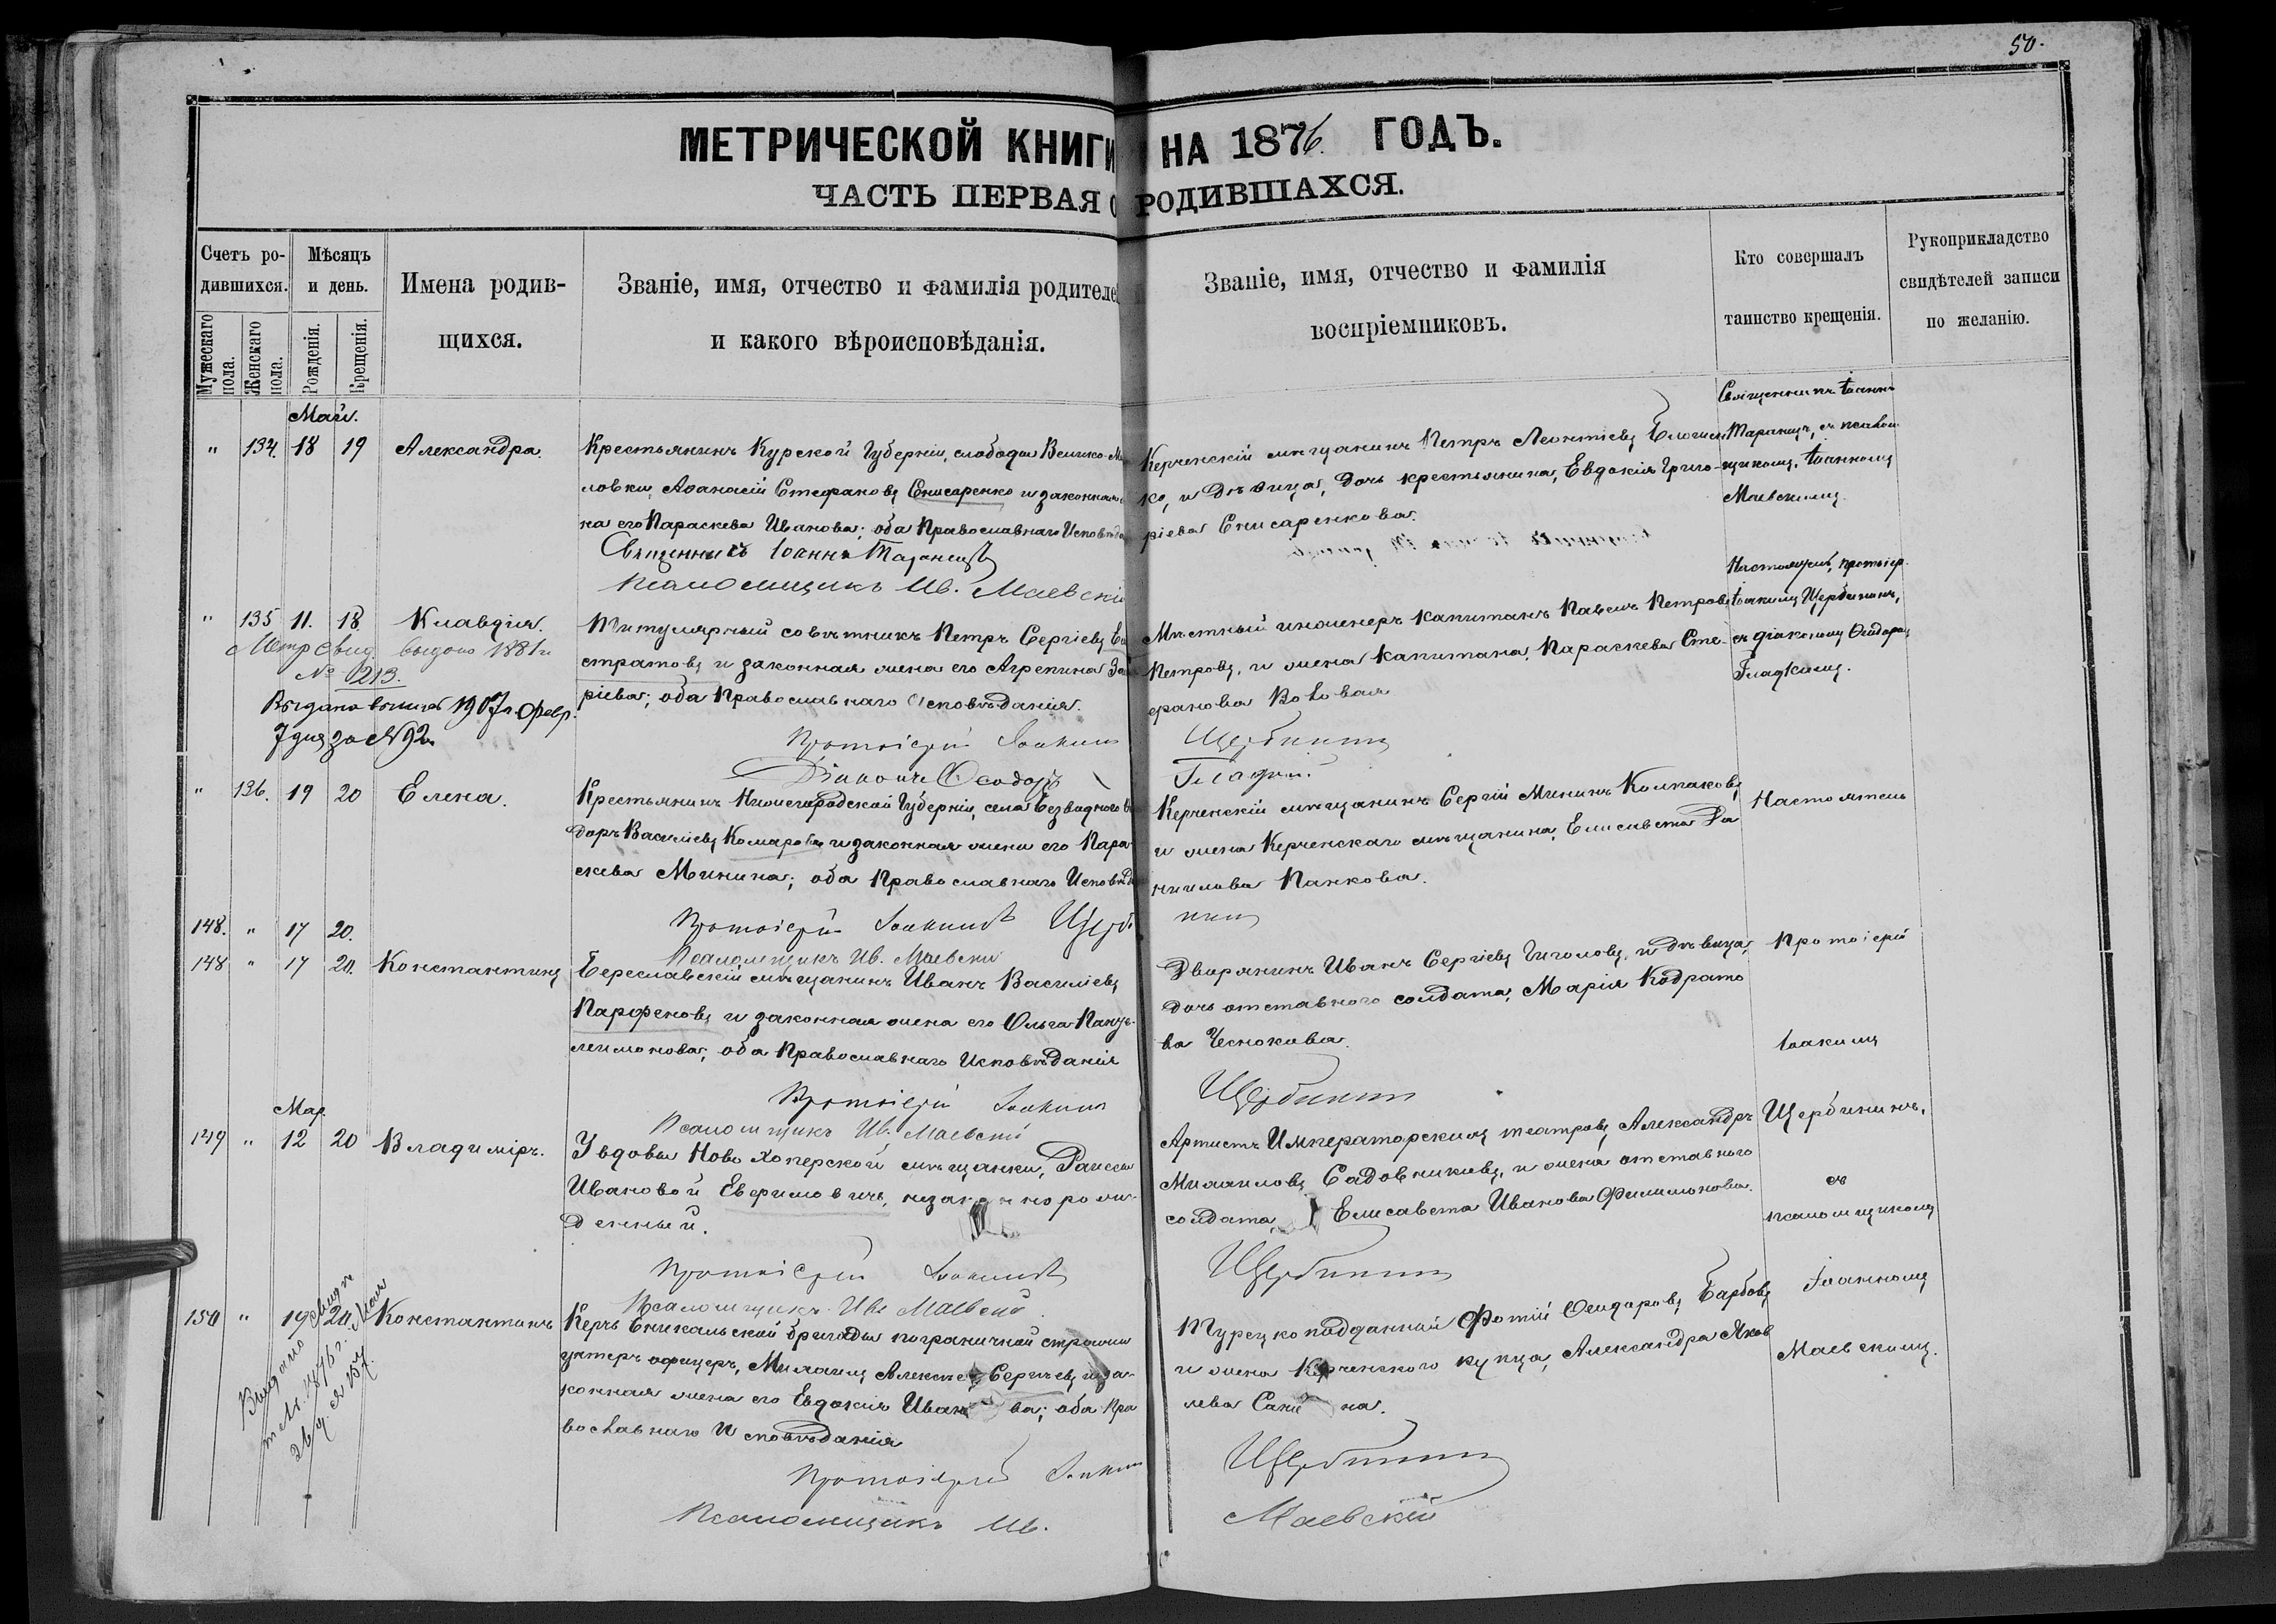 50.
МЕТРИЧЕСКОЙ КНИГИ НА 1876 ГОДЪ.
ЧАСТЬ ПЕРВАЯ О РОДИВШАХСЯ.
Счетъ ро-
дившихся.
Мужескаго пола.
Женскаго пола.
Мѣсяцъ
и день.
Рожденія.
Крещенія.
Имена родив-
щихся.
Званіе, имя, отчество и фамилія родителе
и какого вѣроисповѣданія.
Званіе, имя, отчество и фамилія
воспріемниковъ.
Кто совершалъ
таинство крещенія.
Рукоприкладство
свидѣтелей записи
по желанію.
Май.
" 134. 18 19 Александра.
Крестьянинъ Курской Губерніи, слободы Велико-Ми
ловки, Афанасій Стефановъ Снисаренко и законная
на его Параскева Иванова; оба Православнаго Исповѣда
Священникъ Іоаннъ Таранецъ
Псаломщикъ Ив. Маевскій
Керченскій мѣщанинъ Петръ Леонтіевъ
ко, и дѣвица, дочь крестьянина, Евдокія Григо-
ріева Снисаренкова.
Священникъ Іоаннъ
Таранецъ, съ псалом
щикомъ, Іоанномъ
Маевскимъ.
" 135 11. 18. Клавдія.
Метр. Свид. выдано 1881 г.
№ 213.
Выдано 1907 г. Февр.
7 дня за № 92.
Титулярный совѣтникъ Петръ Сергіевъ Ев
стратовъ и законная жена его Агрепина За
ріева; оба Православнаго Исповѣданія.
Протоіерей Іоакимъ Щербининъ
Діаконъ Ѳеодоръ Гладкій.
Мѣстный инженеръ капитанъ Павелъ Петровъ
Петровъ, и жена капитана, Параскева Сте-
фанова
Настоятель, протоіер.
Іоакимъ Щербининъ,
съ діакономъ Ѳеодоромъ
Гладкимъ.
" 136. 19 20 Елена.
Крестьянинъ Нижегородской Губерніи, села Безводнаго Ѳе
доръ Васильевъ Комаровъ и законная жена его Пара
скева Минина; оба Православнаго Исповѣд
Протоіерей Іоакимъ Щербининъ
Псаломщикъ Ив. Маевскій
Керченскій мѣщанинъ Сергій Мининъ Колпаковъ,
и жена Керченскаго мѣщанина, Елисавета Да
ніилова Панкова.
Настоятель
148. " 17 20.
148 " 17 20. Константинъ
Береславскій мѣщанинъ Иванъ Василіевъ
Парфеновъ и законная жена его Ольга Пант-
леимонова; оба Православнаго Исповѣданія
Протоіерей Іоакимъ Щербининъ
Псаломщикъ Ив. Маевскій
Дворянинъ Иванъ Сергіевъ Гиголовъ, и дѣвица,
дочь отставнаго солдата, Марія Кодрато
ва Чеснокова.
Протоіерей
Іоакимъ
Мар.
149 " 12 20 Владиміръ.
У вдовы Ново Хоперской мѣщанки, Раисы
Ивановой Ефримовичъ, незаконнорож-
денный.
Протоіерей Іоакимъ Щербининъ
Псаломщикъ Ив. Маевскій
Артистъ Императорскихъ театровъ, Александръ
Михаиловъ Садовниковъ, и жена отставного
солдата, Елисавета Иванова Филимонова.
Щербининъ,
съ
псаломщикомъ
150 " 19 20. Константинъ
Выдано свидѣ
1876 г. Мая
26 д. № 157.
Керчь Еникальской бригады пограничной стражи
унтеръ офицеръ, Михаилъ Алексѣевъ Сергѣевъ и за-
конная жена его Евдокія Иванова; оба Пра
вославнаго Исповѣданія
Протоіерей Іоакимъ Щербининъ
Псаломщикъ Ив. Маевскій
Турецкоподданный Фотій Ѳеодоровъ Барбовъ
и жена Керченскаго купца, Александра Яков
лева Санина.
Іоанномъ
Маевскимъ.